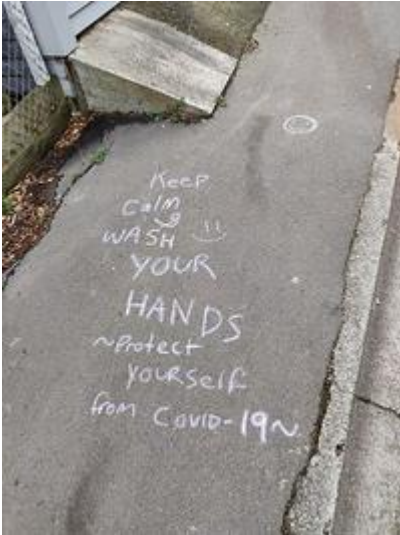 Keep
CalM
WASH
YOUR
HANDS
~Protect
YOURSelf
from COVID-19~